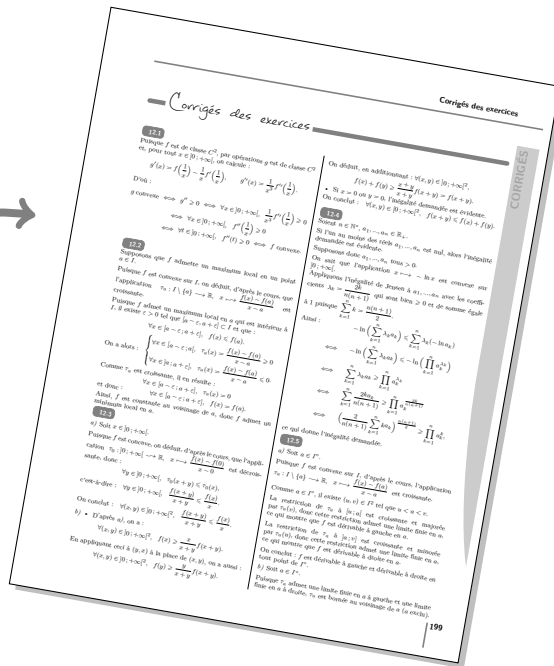 Corrigés des exercices
Corrigés des exercices
CORRIGÉS
12.1
Puisque f est de classe C², par opérations g est de classe C²
et, pour tout x ∈ ]0 ; +∞[, on calcule :
g′(x) = f(1/x) − 1/x f′(1/x), g″(x) = 1/x³ f″(1/x).
D'où :
g convexe ⟺ g″ ≥ 0 ⟺ ∀x ∈ ]0 ; +∞[, 1/x³ f″(1/x) ≥ 0
⟺ ∀x ∈ ]0 ; +∞[, f″(1/x) ≥ 0
⟺ ∀t ∈ ]0 ; +∞[, f″(t) ≥ 0 ⟺ f convexe.
12.2
Supposons que f admette un maximum local en un point
a ∈ I.
Puisque f est convexe sur I, on déduit, d'après le cours, que
l'application τₐ : I \ {a} ⟶ ℝ, x ⟼ (f(x) − f(a))/(x − a) est
croissante.
Puisque f admet un maximum local en a qui est intérieur à
I, il existe ε > 0 tel que [a − ε ; a + ε] ⊂ I et que :
∀x ∈ [a − ε ; a + ε], f(x) ≤ f(a).
On a alors : ∀x ∈ [a − ε ; a[, τₐ(x) = (f(x) − f(a))/(x − a) ≥ 0
∀x ∈ ]a ; a + ε], τₐ(x) = (f(x) − f(a))/(x − a) ≤ 0.
Comme τₐ est croissante, il en résulte :
∀x ∈ [a − ε ; a + ε], τₐ(x) = 0
et donc : ∀x ∈ [a − ε ; a + ε], f(x) = f(a).
Ainsi, f est constante au voisinage de a, donc f admet un
minimum local en a.
12.3
a) Soit x ∈ ]0 ; +∞[.
Puisque f est concave, on déduit, d'après le cours, que l'appli-
cation τ₀ : ]0 ; +∞[ ⟶ ℝ, x ⟼ (f(x) − f(0))/(x − 0) est décrois-
sante, donc :
∀y ∈ ]0 ; +∞[, τ₀(x + y) ≤ τ₀(x),
c'est-à-dire : ∀y ∈ ]0 ; +∞[, f(x + y)/(x + y) ≤ f(x)/x.
On conclut : ∀(x, y) ∈ ]0 ; +∞[², f(x + y)/(x + y) ≤ f(x)/x.
b) • D'après a), on a :
∀(x, y) ∈ ]0 ; +∞[², f(x) ≥ x/(x + y) f(x + y).
En appliquant ceci à (y, x) à la place de (x, y), on a aussi :
∀(x, y) ∈ ]0 ; +∞[², f(y) ≥ y/(x + y) f(x + y).
On déduit, en additionnant : ∀(x, y) ∈ ]0 ; +∞[²,
f(x) + f(y) ≥ (x + y)/(x + y) f(x + y) = f(x + y).
• Si x = 0 ou y = 0, l'inégalité demandée est évidente.
On conclut : ∀(x, y) ∈ [0 ; +∞[², f(x + y) ≤ f(x) + f(y).
12.4
Soient n ∈ ℕ*, a₁, ..., aₙ ∈ ℝ₊.
Si l'un au moins des réels a₁, ..., aₙ est nul, alors l'inégalité
demandée est évidente.
Supposons donc a₁, ..., aₙ tous > 0.
On sait que l'application x ⟼ − ln x est convexe sur
]0 ; +∞[.
Appliquons l'inégalité de Jensen à a₁, ..., aₙ avec les coeffi-
cients λₖ = 2k/(n(n + 1)) qui sont bien ≥ 0 et de somme égale
à 1 puisque ∑ₖ₌₁ⁿ k = n(n + 1)/2.
Ainsi :
− ln (∑ₖ₌₁ⁿ λₖaₖ) ≤ ∑ₖ₌₁ⁿ λₖ(− ln aₖ)
⟺ − ln (∑ₖ₌₁ⁿ λₖaₖ) ≤ − ln (∏ₖ₌₁ⁿ aₖ^λₖ)
⟺ ∑ₖ₌₁ⁿ λₖaₖ ≥ ∏ₖ₌₁ⁿ aₖ^λₖ
⟺ ∑ₖ₌₁ⁿ 2kaₖ/(n(n + 1)) ≥ ∏ₖ₌₁ⁿ aₖ^(2k/(n(n+1)))
⟺ (2/(n(n + 1)) ∑ₖ₌₁ⁿ kaₖ)^(n(n+1)/2) ≥ ∏ₖ₌₁ⁿ aₖᵏ,
ce qui donne l'inégalité demandée.
12.5
a) Soit a ∈ I°.
Puisque f est convexe sur I, d'après le cours, l'application
τₐ : I \ {a} ⟶ ℝ, x ⟼ (f(x) − f(a))/(x − a) est croissante.
Comme a ∈ I°, il existe (u, v) ∈ I² tel que u < a < v.
La restriction de τₐ à [u ; a[ est croissante et majorée
par τₐ(v), donc cette restriction admet une limite finie en a,
ce qui montre que f est dérivable à gauche en a.
La restriction de τₐ à ]a ; v] est croissante et minorée
par τₐ(u), donc cette restriction admet une limite finie en a,
ce qui montre que f est dérivable à droite en a.
On conclut : f est dérivable à gauche et dérivable à droite en
tout point de I°.
b) Soit a ∈ I°.
Puisque τₐ admet une limite finie en a à gauche et une limite
finie en a à droite, τₐ est bornée au voisinage de a (a exclu).
199